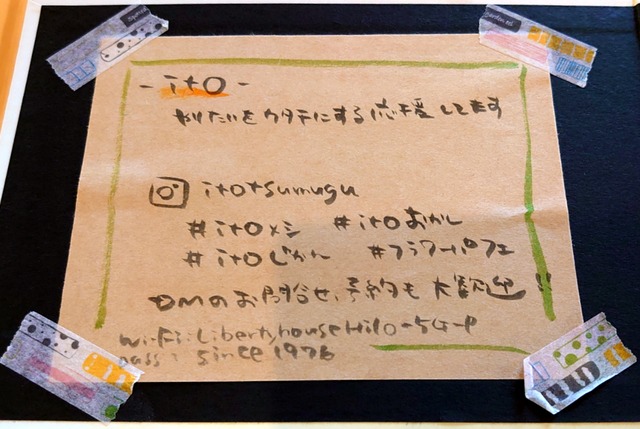 - ito -
やりたいをカタチにする応援してます
itotsumugu
#itoメシ #itoおかし
#itoじかん #フラワーパフェ
DMのお問合せ、予約も大歓迎!!
Wi-Fi: LibertyhouseHilo-5G-P
pass: since1976